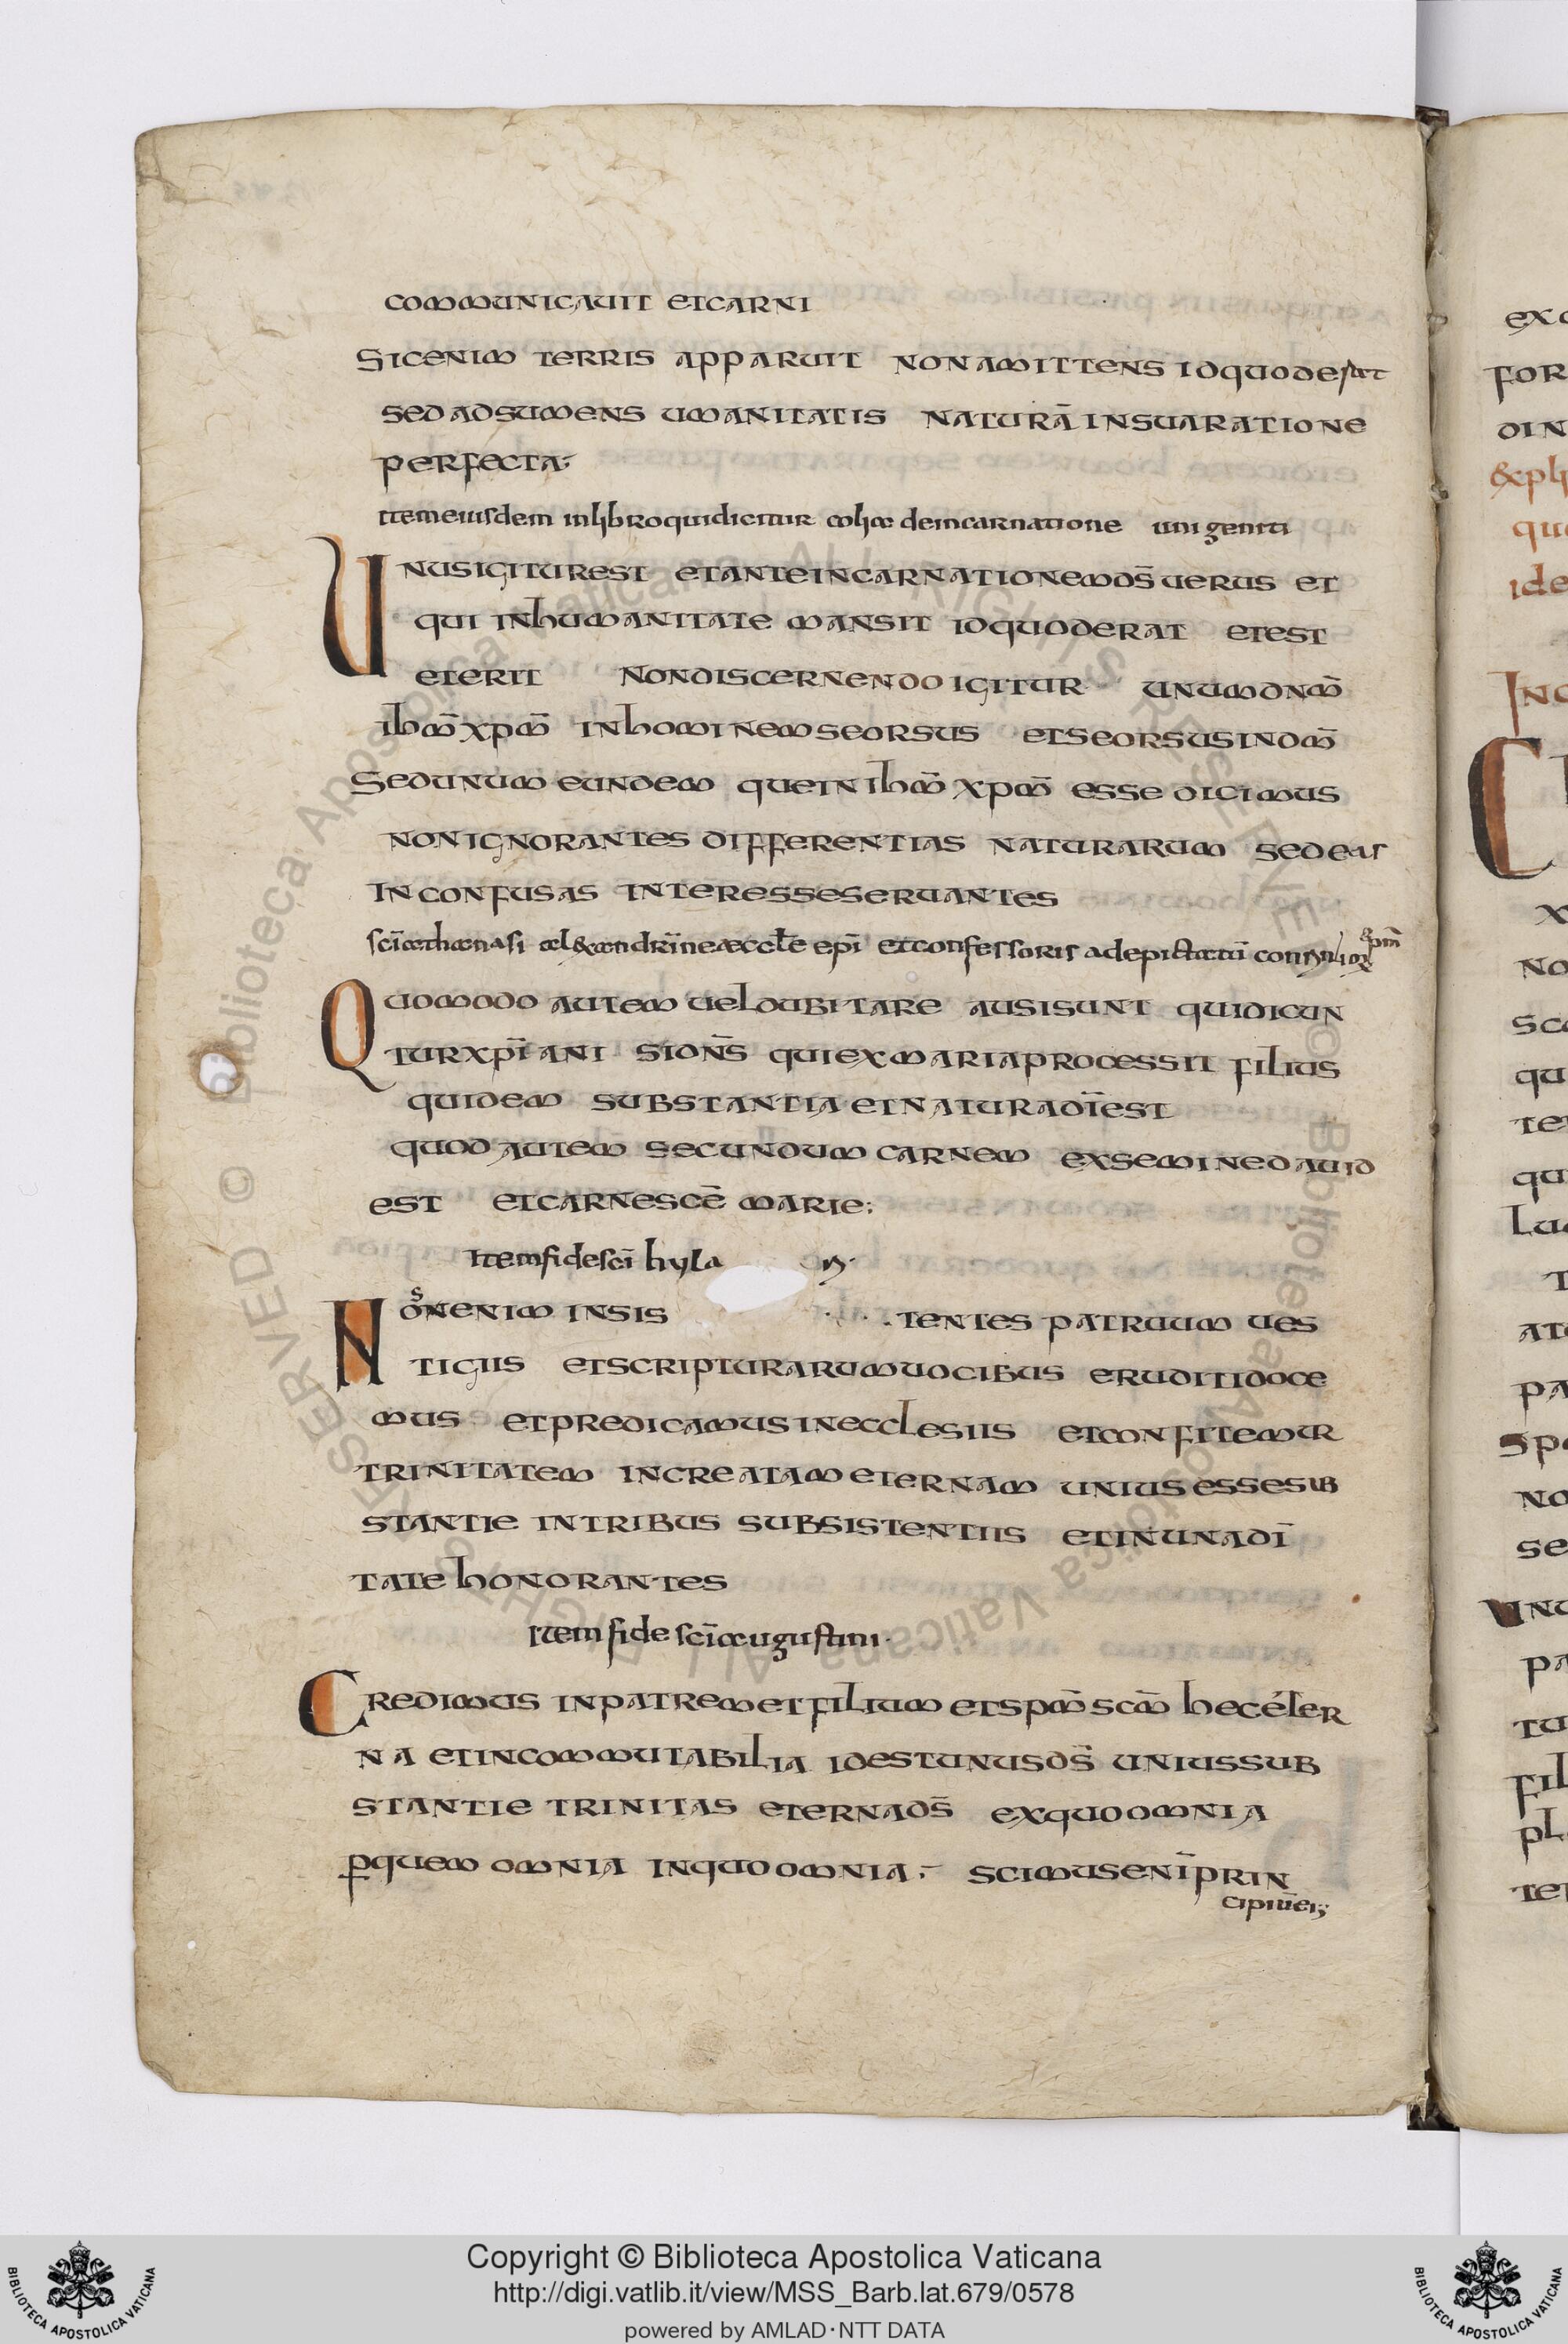 communicauit etcarni
Sicenim terris apparuit non amittens idquoderat
sed adsumens umanitatis naturā insuaratione
perfecta·
Item eiusdem inlibroquidicitur deincarnatione unigeniti
Unusigiturest etanteincarnationemds̄ uerus et
qui inhumanitate mansit idquoderat etest
eterit Nondiscernendo igitur unumdnm̄
ihm̄ xpm̄ inhominemseorsus etseorsusindm̄
Sedunum eundem quein ihm̄ xpm̄ esse dicimus
nonignorantes differentias naturarum sed eas
Inconfusas interesseseruantes
sc̄i athanasi alexandrine eccl̄e epī etconfessoris adepictatū
Quomodo autem ueldubitare ausisunt quidicun
turxpīani sidn̄s quiexmariaprocessit filius
quidem substantia etnaturadīest
quod autem secundum carnem exseminedauid
est etcarnescē marie;
Itemfidesc̄i hyla
Nonenim insis tentes patruum ues
tigiis etscripturarumuocibus eruditidoce
mus etpredicamusinecclesiis etconfitemur
trinitatem increatam eternam uniusessesub
stantie intribus subsistentiis etinunadī
tate honorantes
Item fide sc̄iaugustini·
Credimus inpatremetfilium etspm̄ scm̄ hecéter
na etincommutabilia idestunusds̄ uniussub
stantie trinitas eternads̄ exquoomnia
pquem omnia inquoomnia· scimusenīprin
cipiūeius
exc
for
din
&pli
que
ide
Inc
C
x
no
sca
qu
te
qu
Lu
T
at
pa
spe
no
se
unu
pa
tu
fil
pl
te
Biblioteca Apostolica Vaticana ALL RIGHTS RESERVED ©
Biblioteca Apostolica Vaticana ALL RIGHTS RESERVED ©
BIBLIOTECA APOSTOLICA VATICANA
Copyright © Biblioteca Apostolica Vaticana
http://digi.vatlib.it/view/MSS_Barb.lat.679/0578
powered by AMLAD·NTT DATA
BIBLIOTECA APOSTOLICA VATICANA